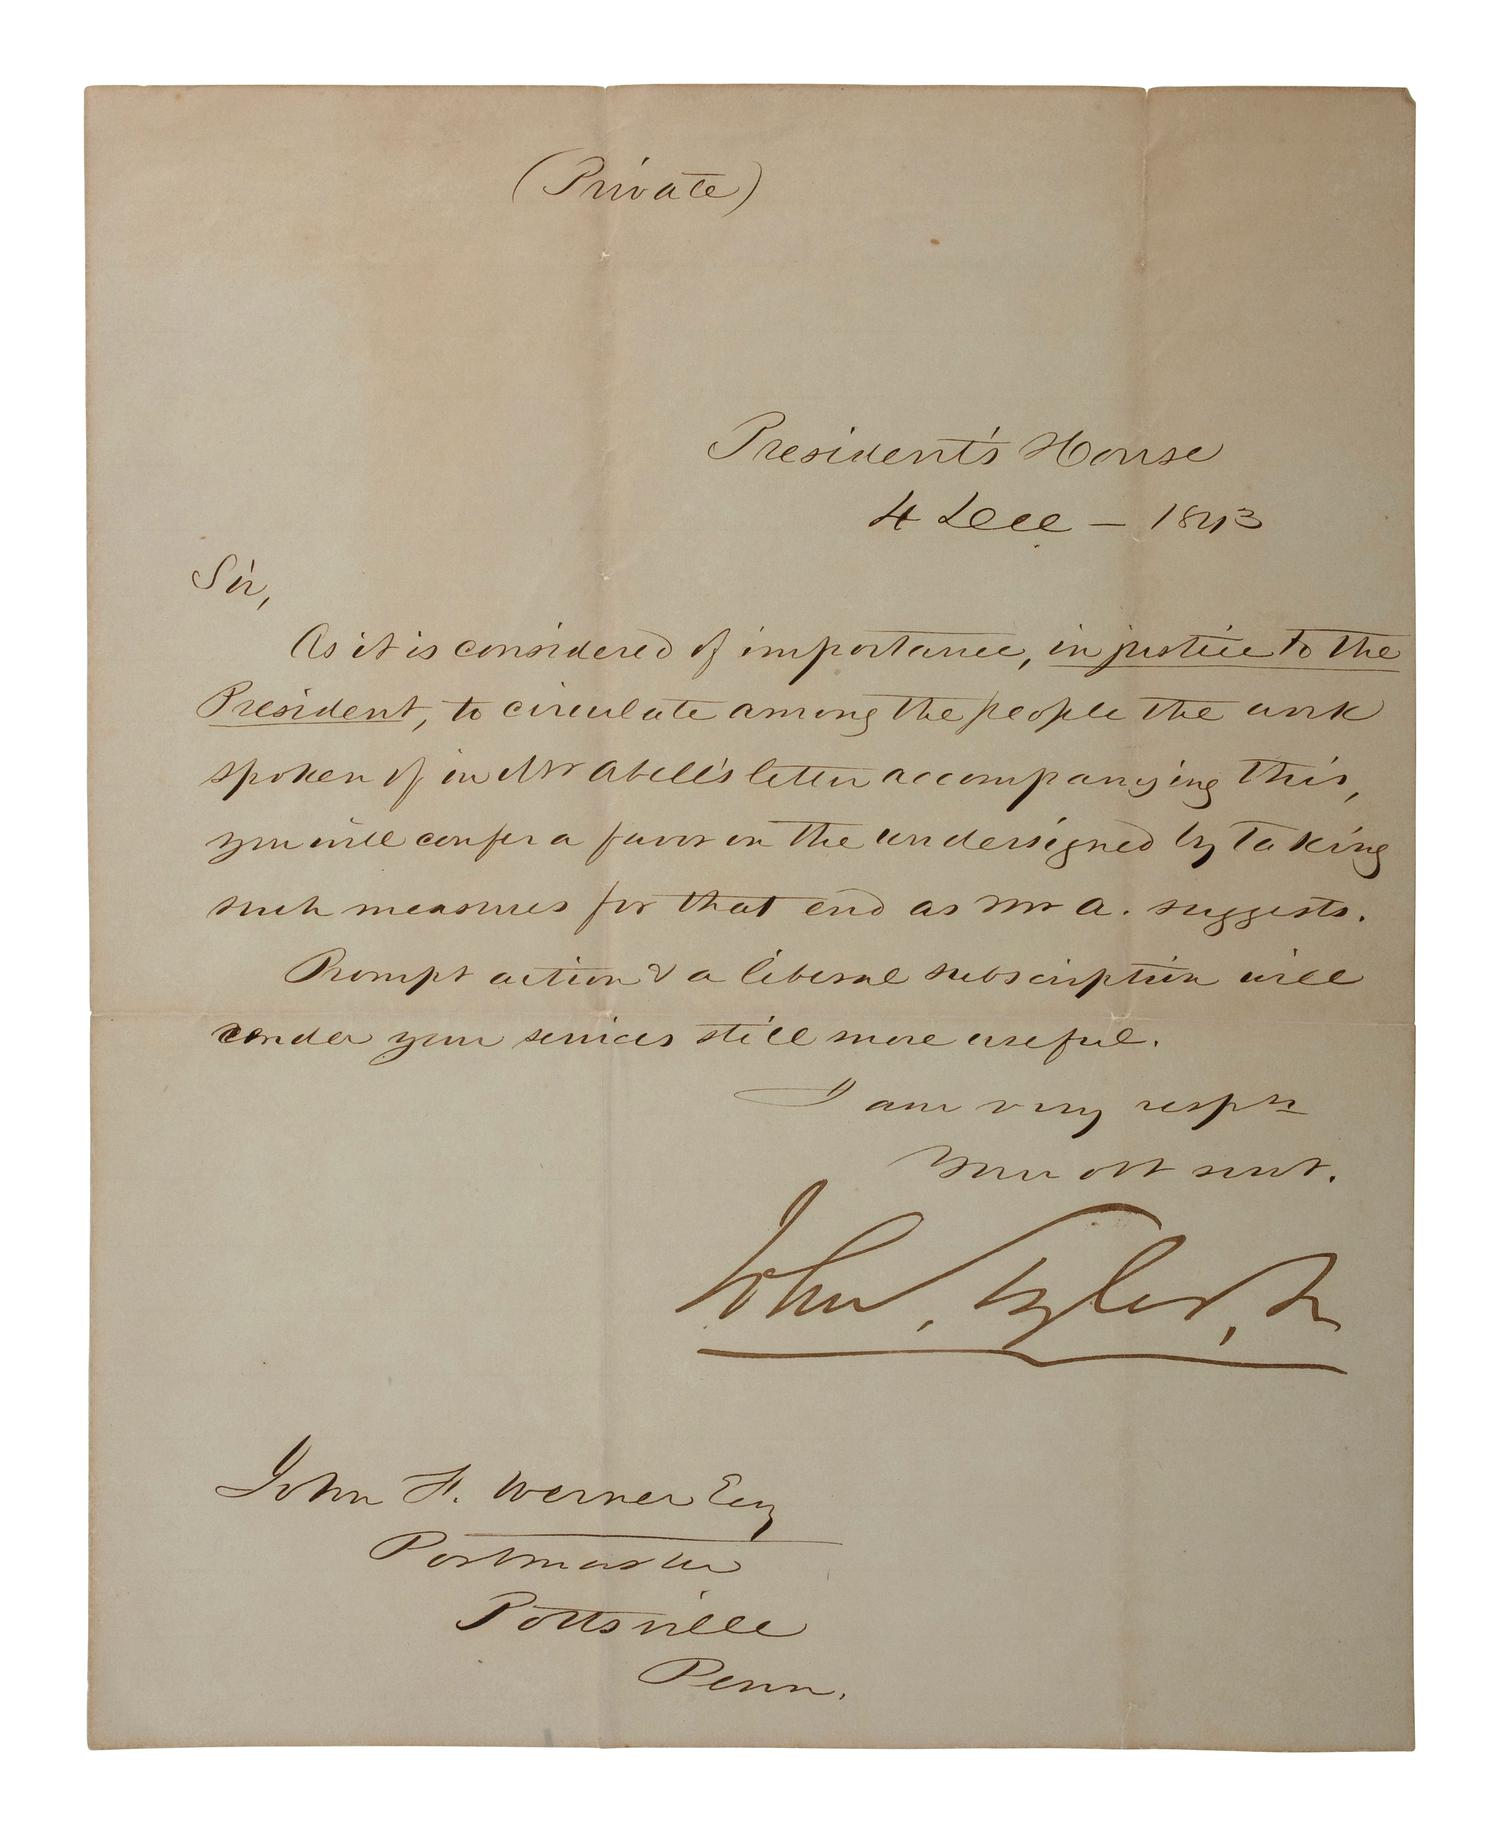 (Private)
President's House
4 Dec – 1843
Sir,
As it is considered of importance, in justice to the
President, to circulate among the people the work
spoken of in Mr Abell's letter accompanying this,
you will confer a favor on the undersigned by taking
such measures for that end as Mr A. suggests.
Prompt action & a liberal subscription will
render your services still more useful.
I am very resply
Your obt servt.
John, Tyler, Jr
John F. Werner Esq
Postmaster
Pottsville
Penn.